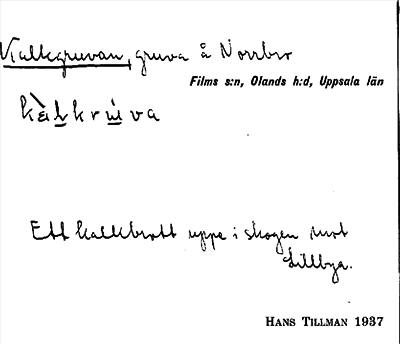 Kalkgruvan, gruva å Norrbo
Films s:n, Olands h:d, Uppsala län
Ett kalkbrott uppe i skogen mot
Lillbya.
HANS TILLMAN 1937